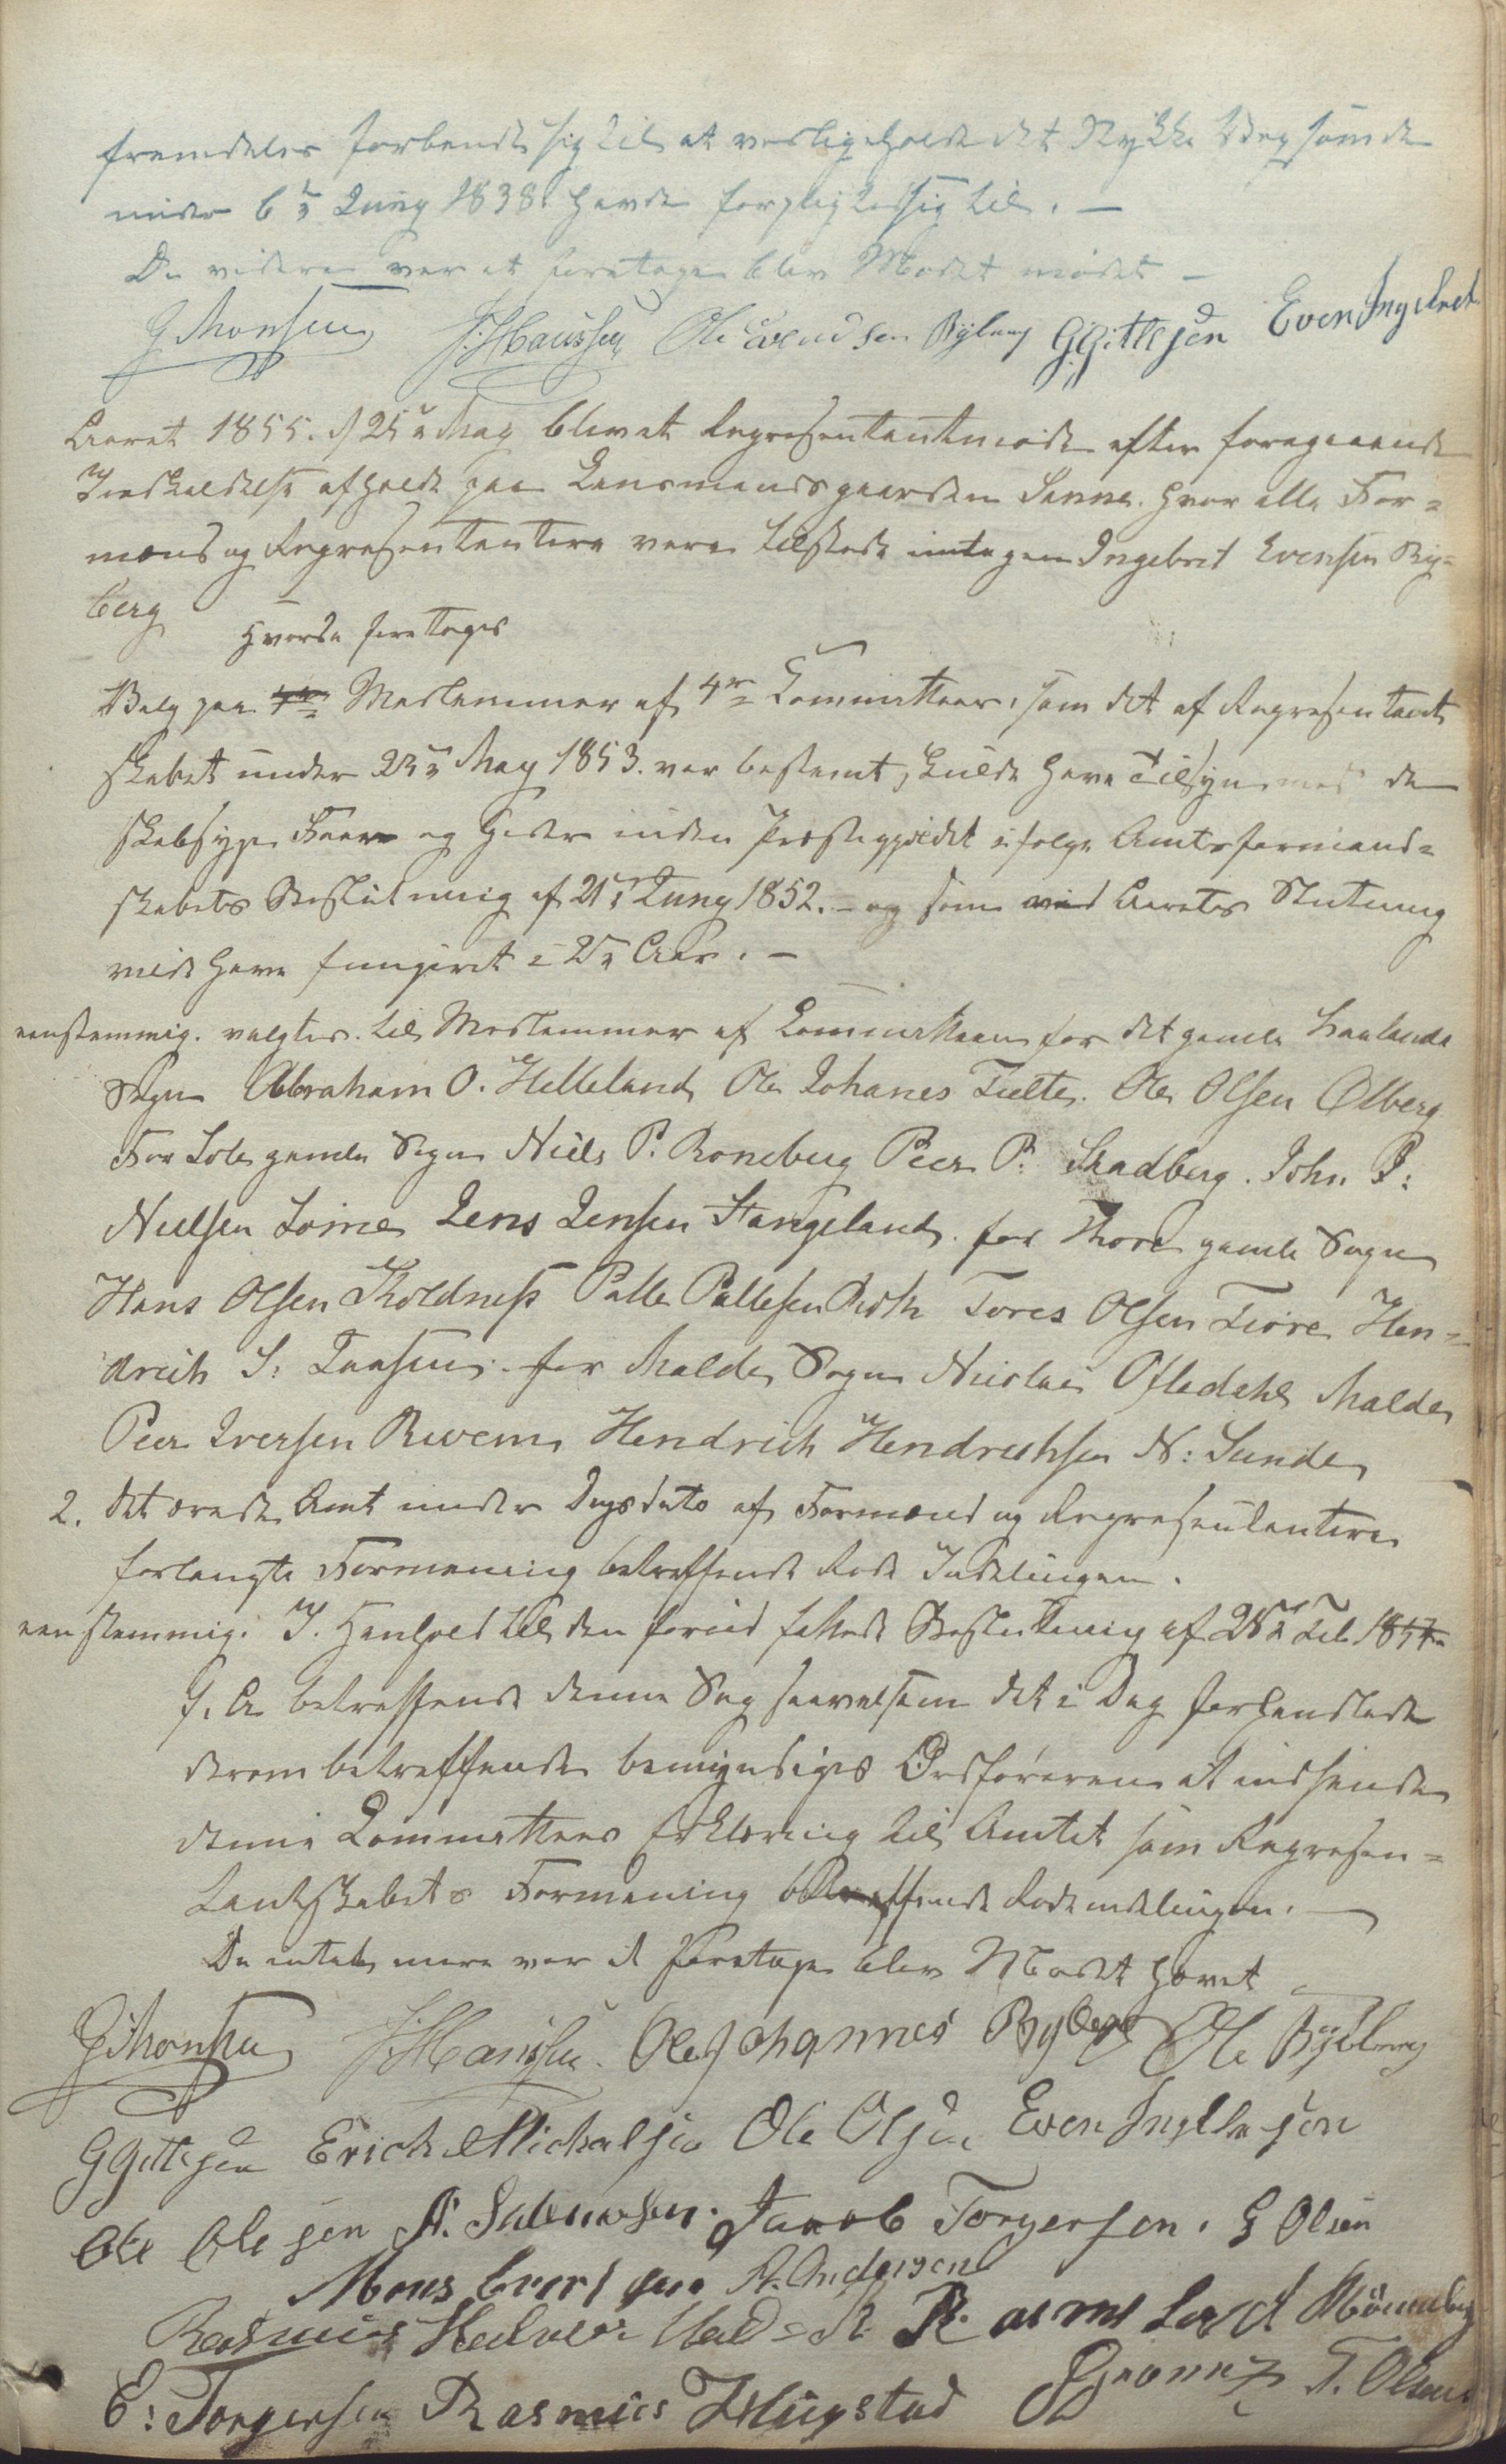 fremdeles forbendt sig til at vedligeholde det Stykke Vey som de
under 6te Juny 1838 havde forpligtet sig til. —
Da videre var at foretage blev Mødet —
G Monsen J. Hansen Ole Evendsen Ryberg G Gitlesen Even Ingebret
Aaret 1855. d 25de May blev et Representantmøde efter foregaaende
Indkaldelse afholdt paa Lensmandsgaarden Sømme. hvor alle For=
mænd og Representantere vare tilstede undtagen Ingebret Evensen Ry=
berg
Hvorda foretoges
Valg paa Medlemmer af 4re Committeer, som det af Representant
skabet under 23de May 1853. var bestemt, skulde have Tilsyn med de
skabsyge Faar og Geder inden Præstegjeldet ifølge Amtsformand=
skabets Beslutning af 21de Juny 1852. — og som ved Aarets Slutning
vilde have fungeret i 2de Aar. —
eenstemmig. valgtes. til Medlemmer af Committeen for det gamle Haalands
Sogn Abraham O. Helleland, Ole Johanes Tielte. Ole Olsen Ølberg
For Sole gamle Sogn Niels P. Roneberg Peer P. Stradberg. John P:
Nielsen Sømme Jens Jensen Stangeland. for gamle Sogn
Hans Olsen Koldnæss Palle Pallesen Risth Tores Olsen Tiøre Hen=
drich S: Taasen. for Malde Sogn Nicolai Ofledahl Malde
Peer Iversen Revem Hendrich Hendrichsen N: Sunde
2. det ærede Amt under Dagsdato af Formænd og Representantere
forlangte Formening betreffende Rode Indelingen.
eenstemmig. I Henhold til den forud fattede Beslutning af 25de Feb 1854
f. A betreffende denne Sag saavelsom det i Dag forhandlede
derom betreffende bemyndiges Ordføreren at indsende
denne Committees Erklæring til Amtet som Represen=
tantskabets Formening betreffende Rodeindelingen. —
Da intet mere var at foretage blev Mødet hævet
G Monsen J. Hansen. Ole Johannes Ryberg Ole Ryberg
G Gitlesen Erich Michalsen Ole Olsen Even Ingebretsen
Ole Olesen A. Salemonsen. Jacob Torgersen. G Olsen
Mons A. Andersen
Rasmus Halvor
E: Torgersen Rasmus T. Olsen